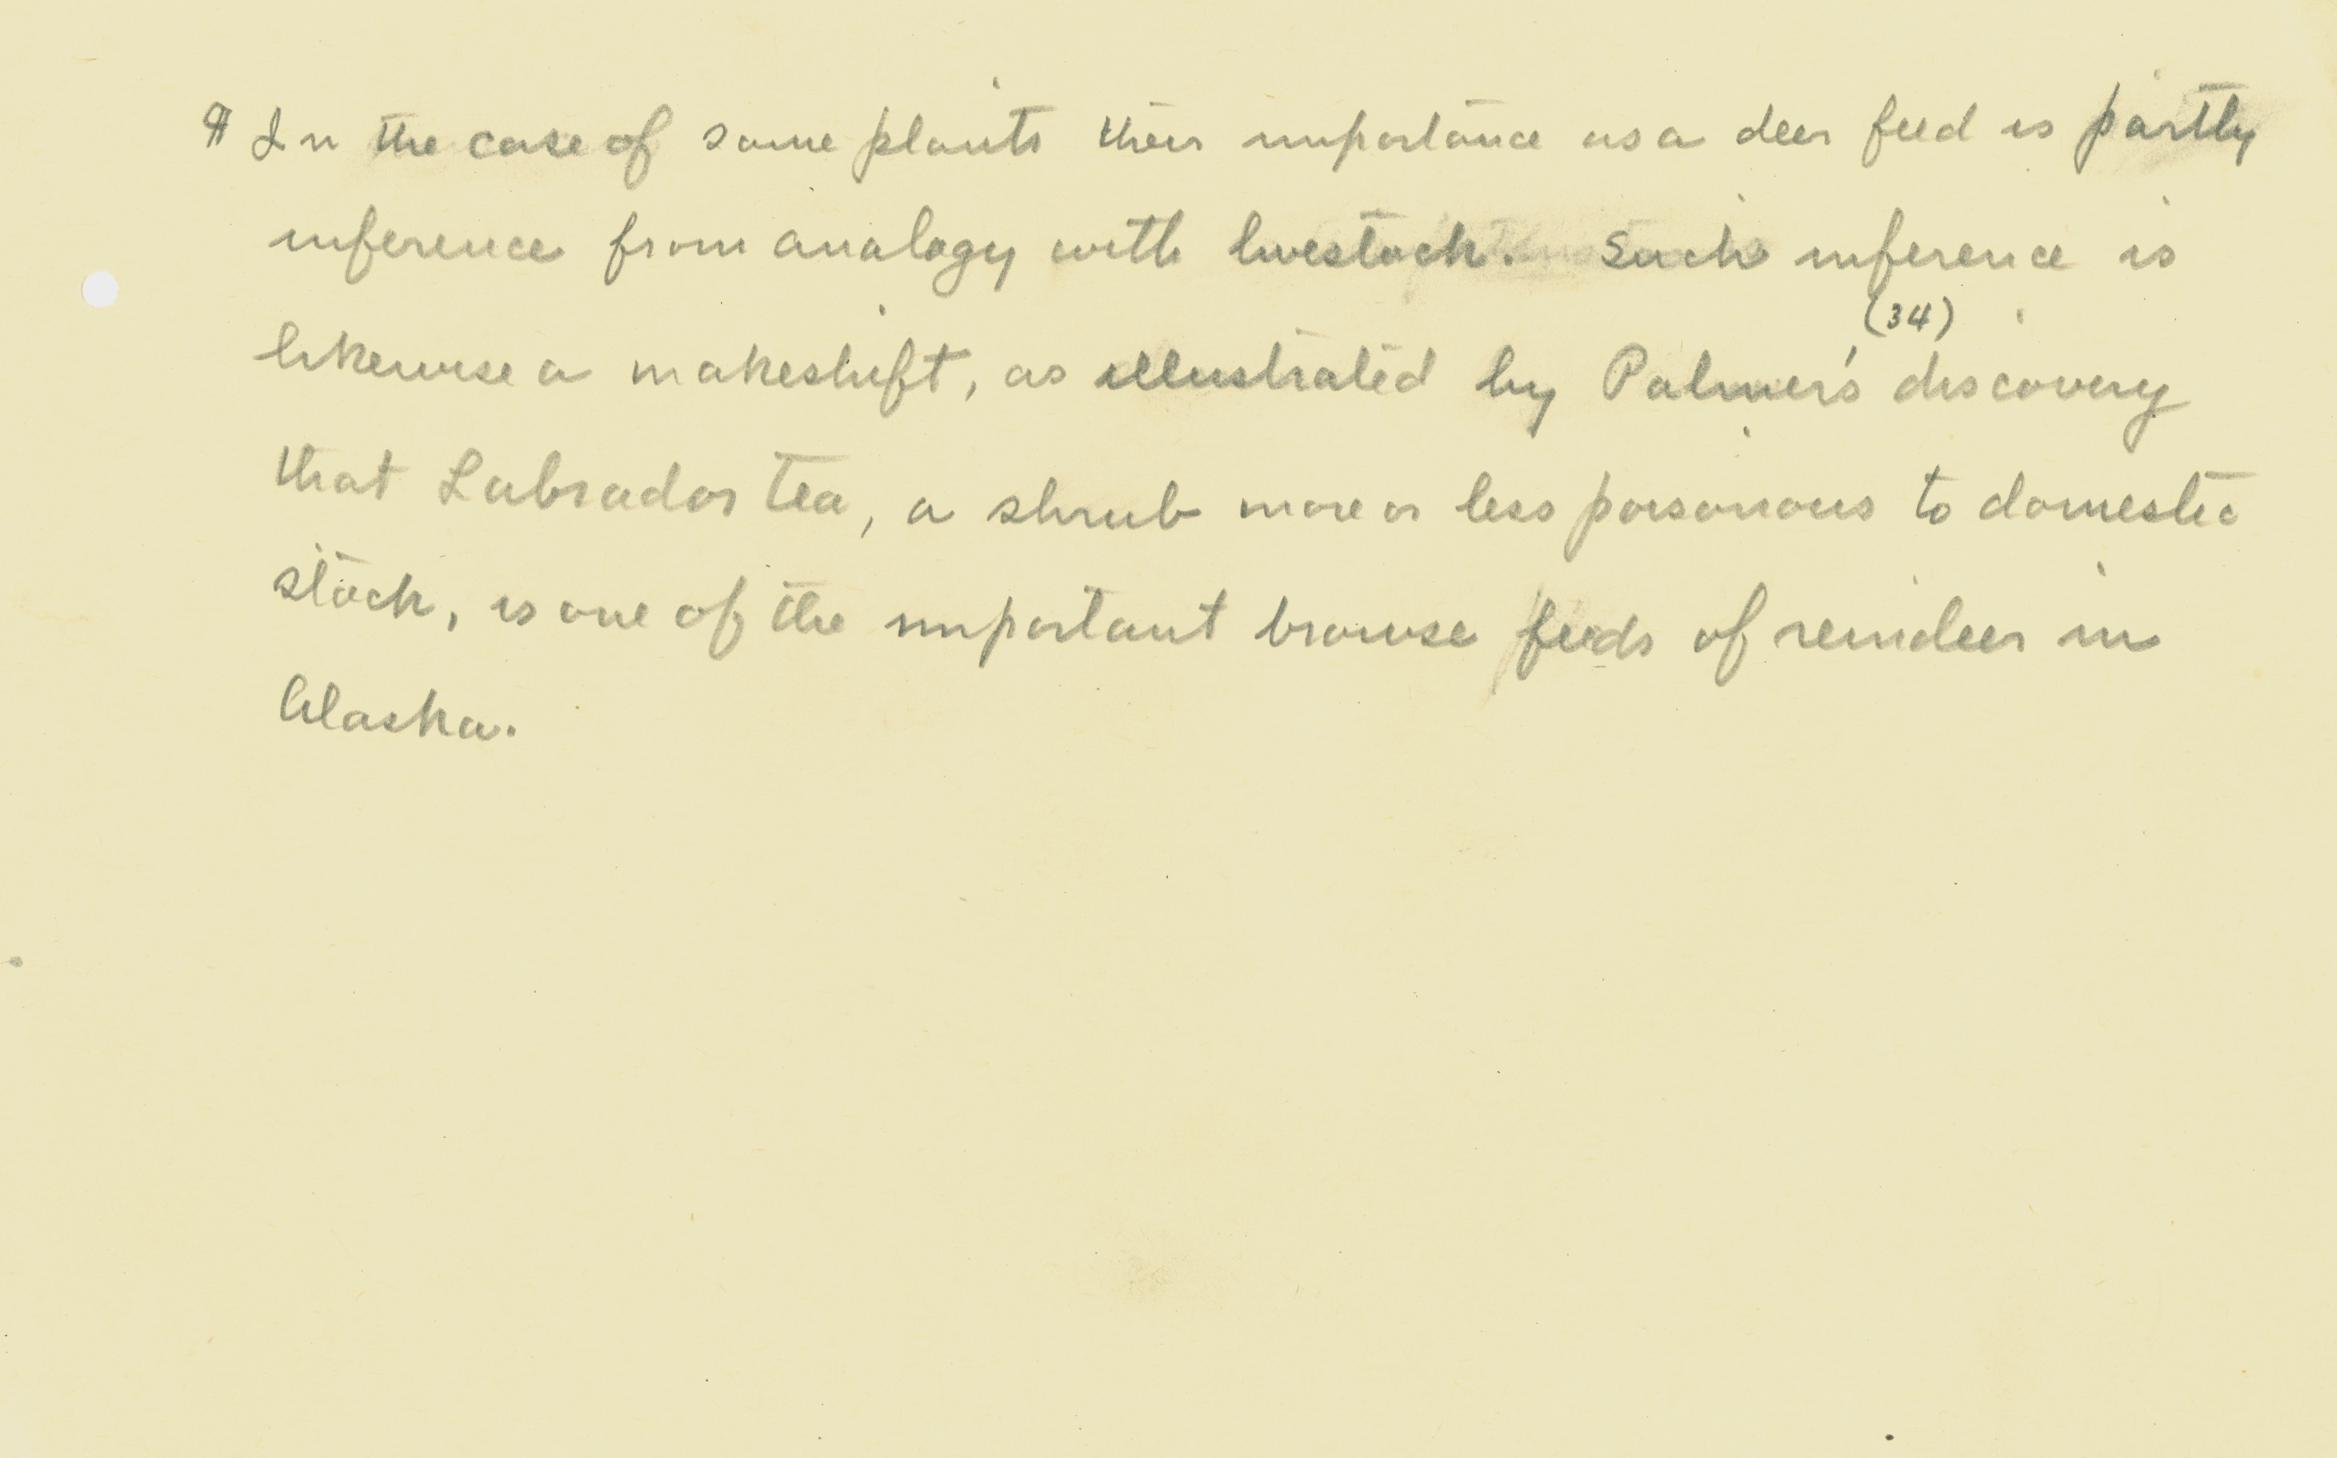 ¶ In the case of some plants their importance as a deer feed is partly
inference from analogy with livestock. Such inference is
(34)
likewise a makeshift, as illustrated by Palmer's discovery
that Labrador tea, a shrub more or less poisonous to domestic
stock, is one of the important browse feeds of reindeer in
Alaska.